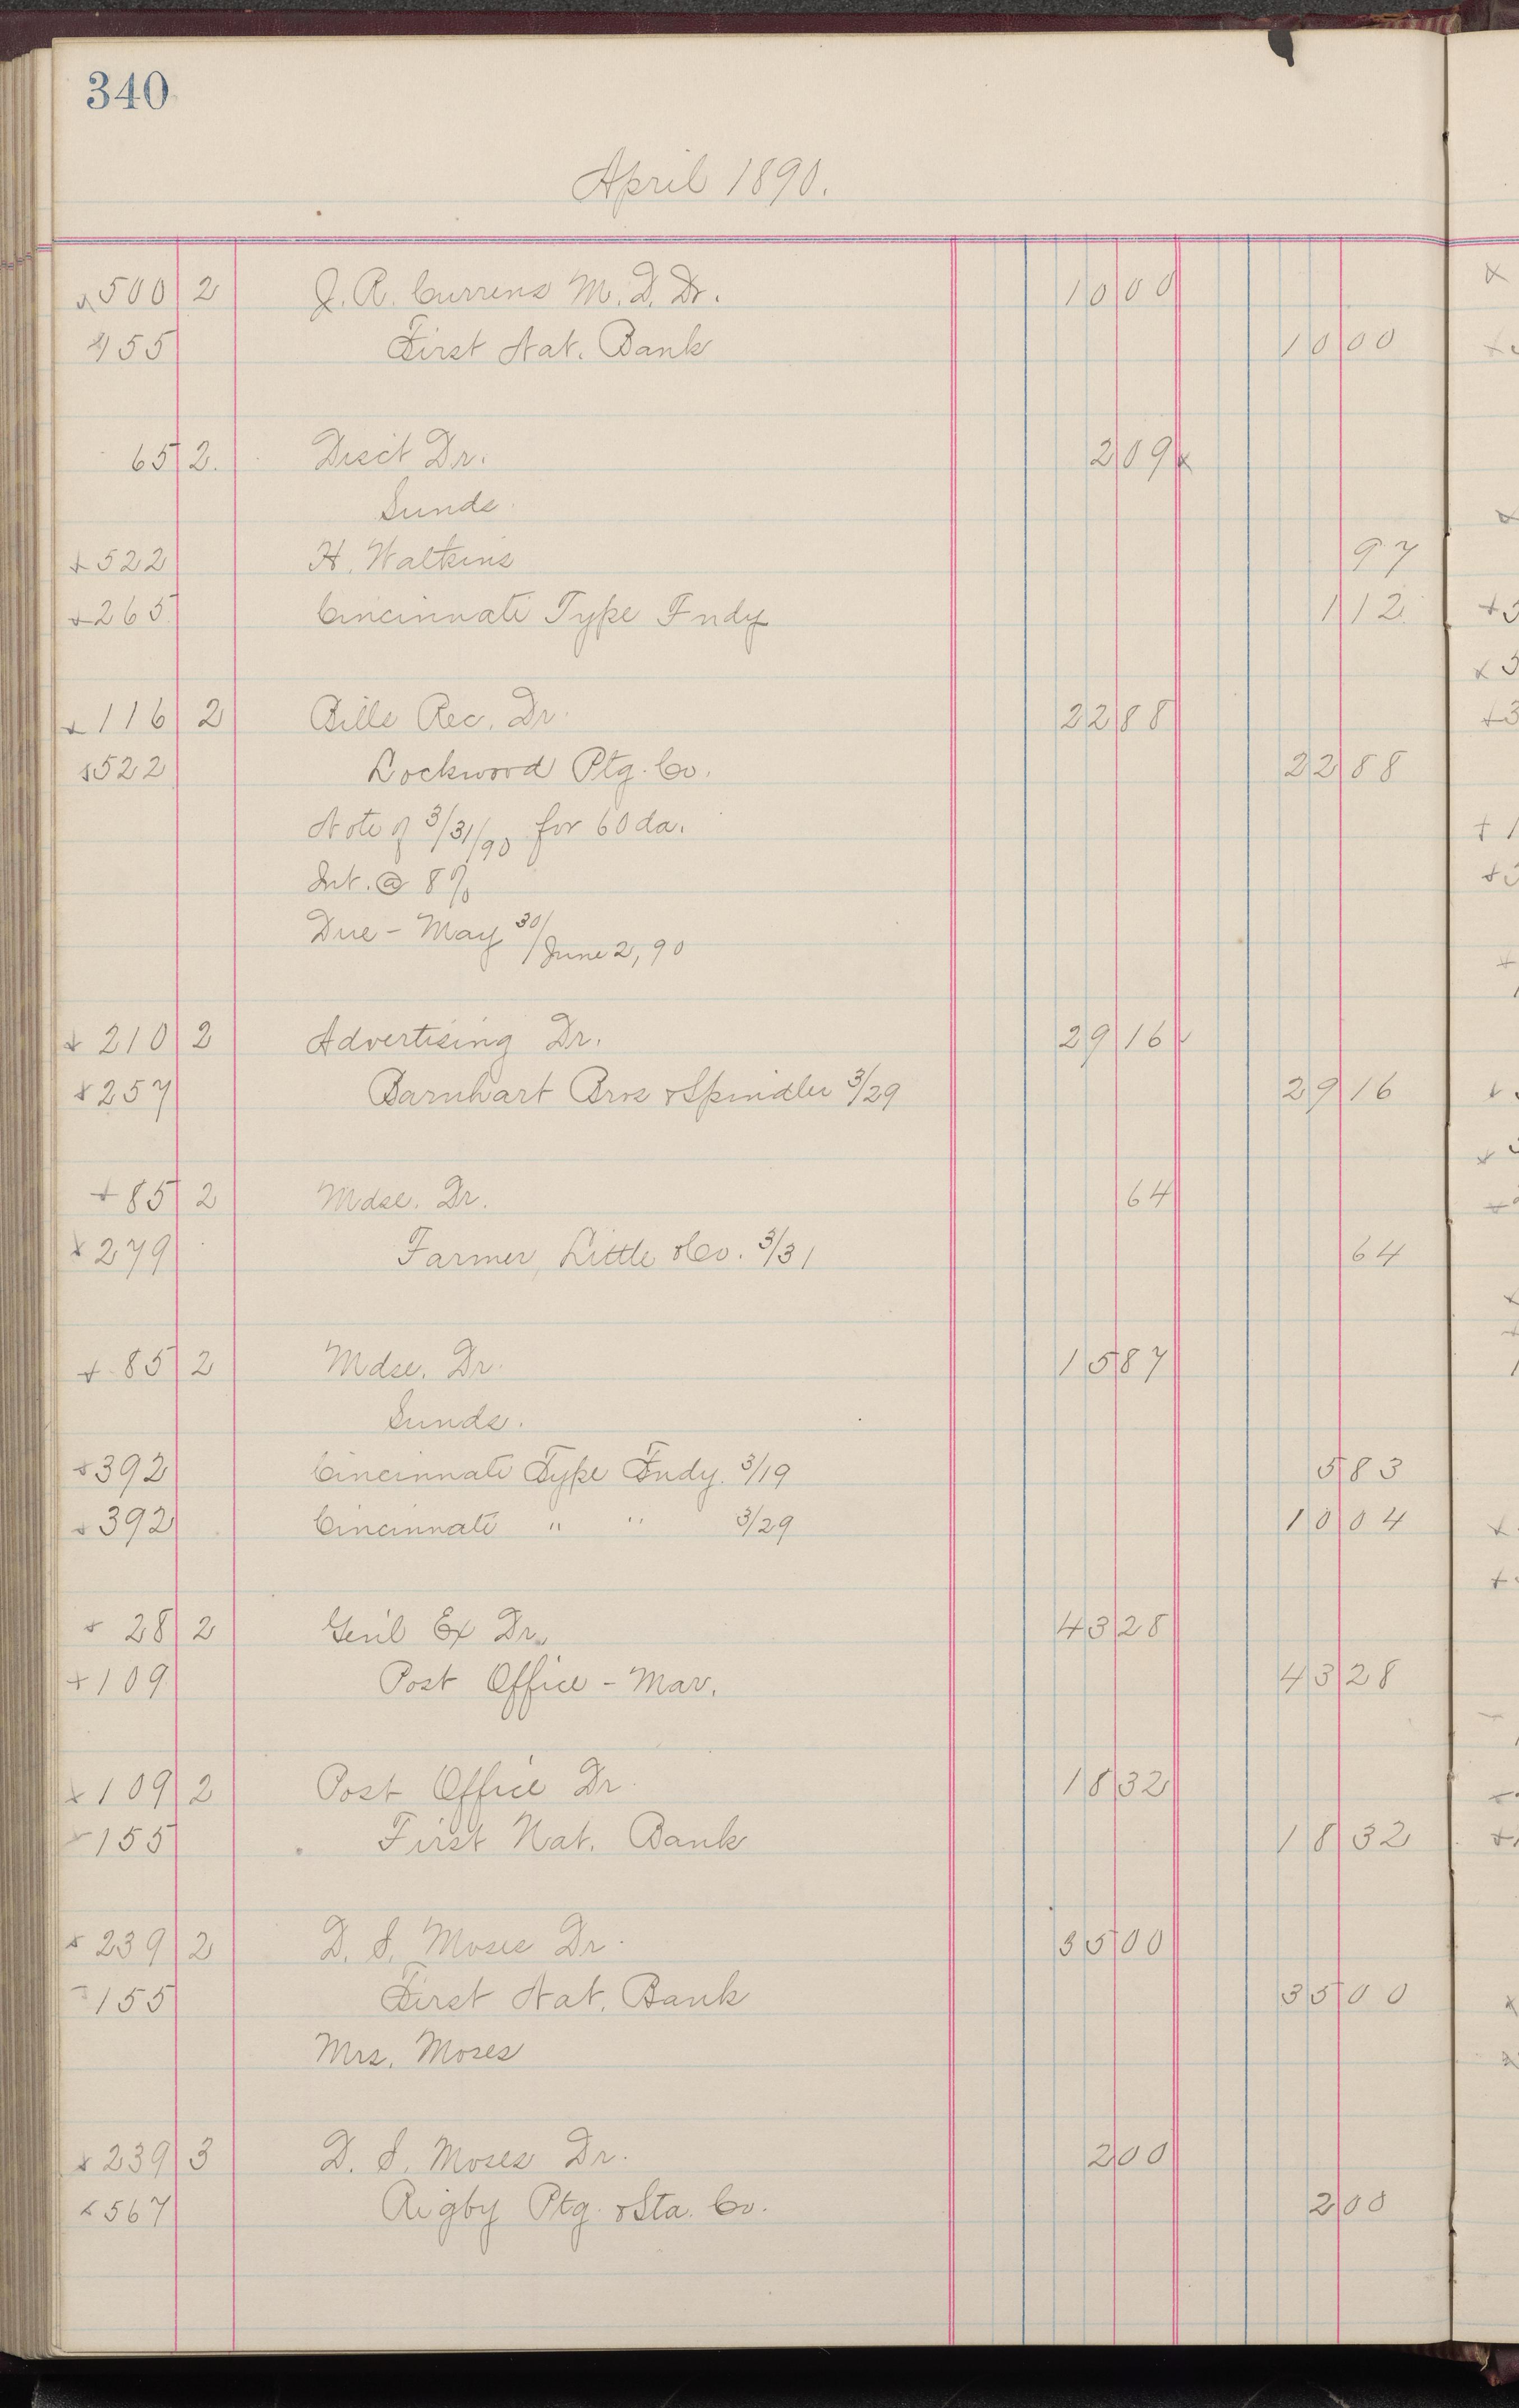 340
April 1890.
x 500 2 J. R. Currens M. D. Dr. 10 00
155 First Nat. Bank 10 00
65 2. Disct Dr. 2 09 x
Sunds
x 522 H. Watkins 97
x 265 Cincinnati Type Fndy 1 12
x 116 2 Bills Rec. Dr. 22 88
x 522 Lockwood Ptg. Co. 22 88
Note of 3/31/90 for 60 da.
Int. @ 8%
Due - May 30/June 2, 90
x 210 2 Advertising Dr. 29 16
x 257 Barnhart Bros & Spindler 3/29 29 16
x 85 2 Mdse. Dr. 64
x 279 Farmer, Little & Co. 3/31 64
x 85 2 Mdse. Dr. 15 87
Sunds.
x 392 Cincinnati Type Fndy. 3/19 5 83
x 392 Cincinnati " " 3/29 10 04
x 28 2 Genl Ex Dr. 43 28
x 109 Post Office - Mar. 43 28
x 109 2 Post Office Dr. 18 32
x 155 First Nat. Bank 18 32
x 239 2 D. S. Moses Dr. 35 00
155 First Nat. Bank 35 00
Mrs. Moses
x 239 3 D. S. Moses Dr. 2 00
x 567 Rigby Ptg. & Sta. Co. 2 00